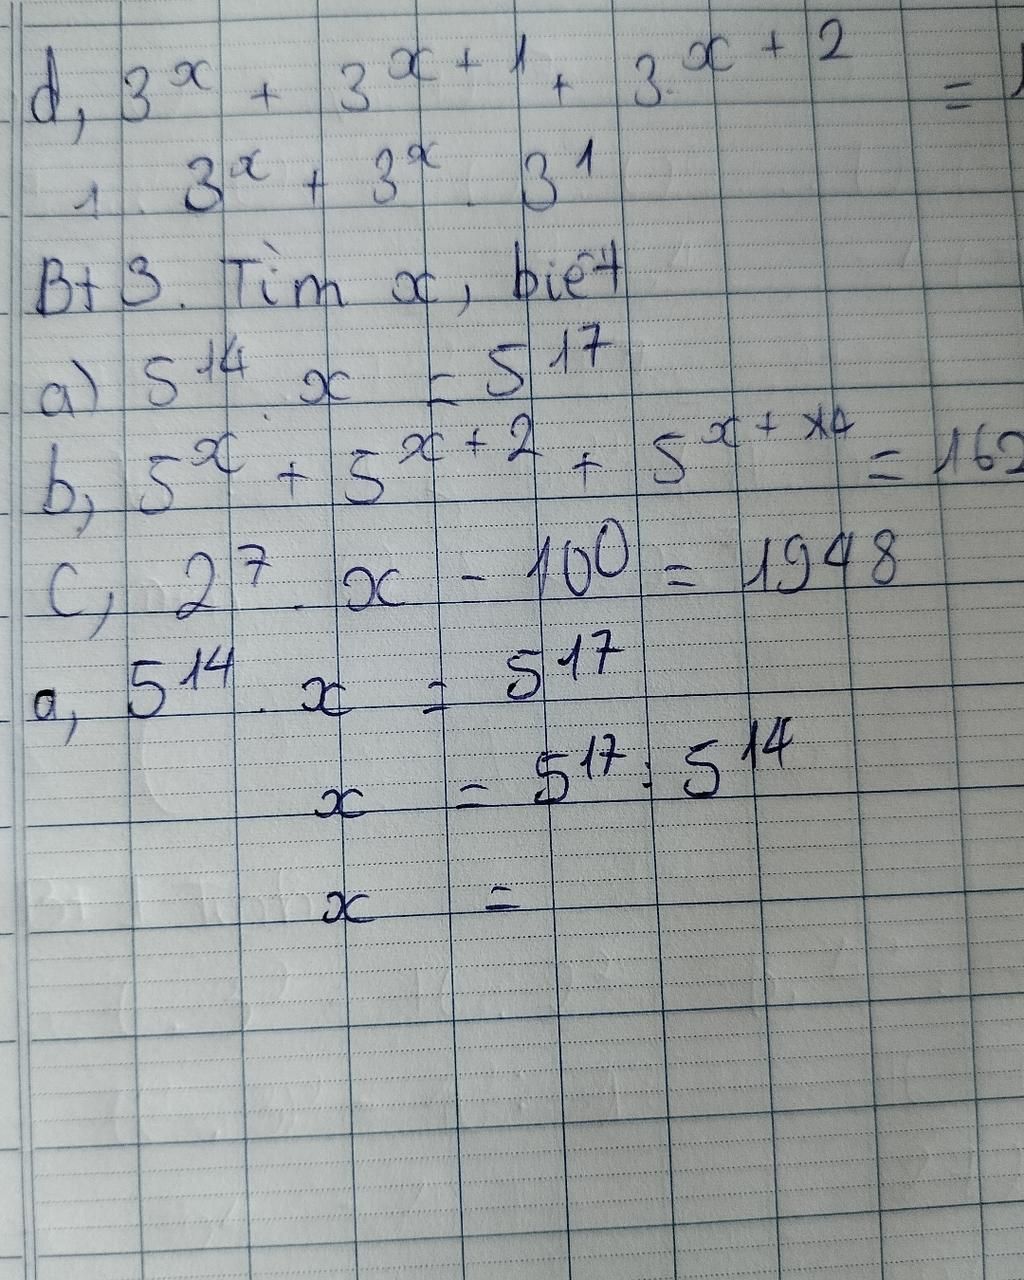 d, 3^x + 3^{x+1} + 3^{x+2} =
1. 3^x + 3^x . 3^1
Bt 3. Tìm x, biết
a) 5^{14} . x = 5^{17}
b, 5^x + 5^{x+2} + 5^{x+4} = 162
c, 2^7 . x - 100 = 1948
a, 5^{14} . x = 5^{17}
x = 5^{17} : 5^{14}
x =